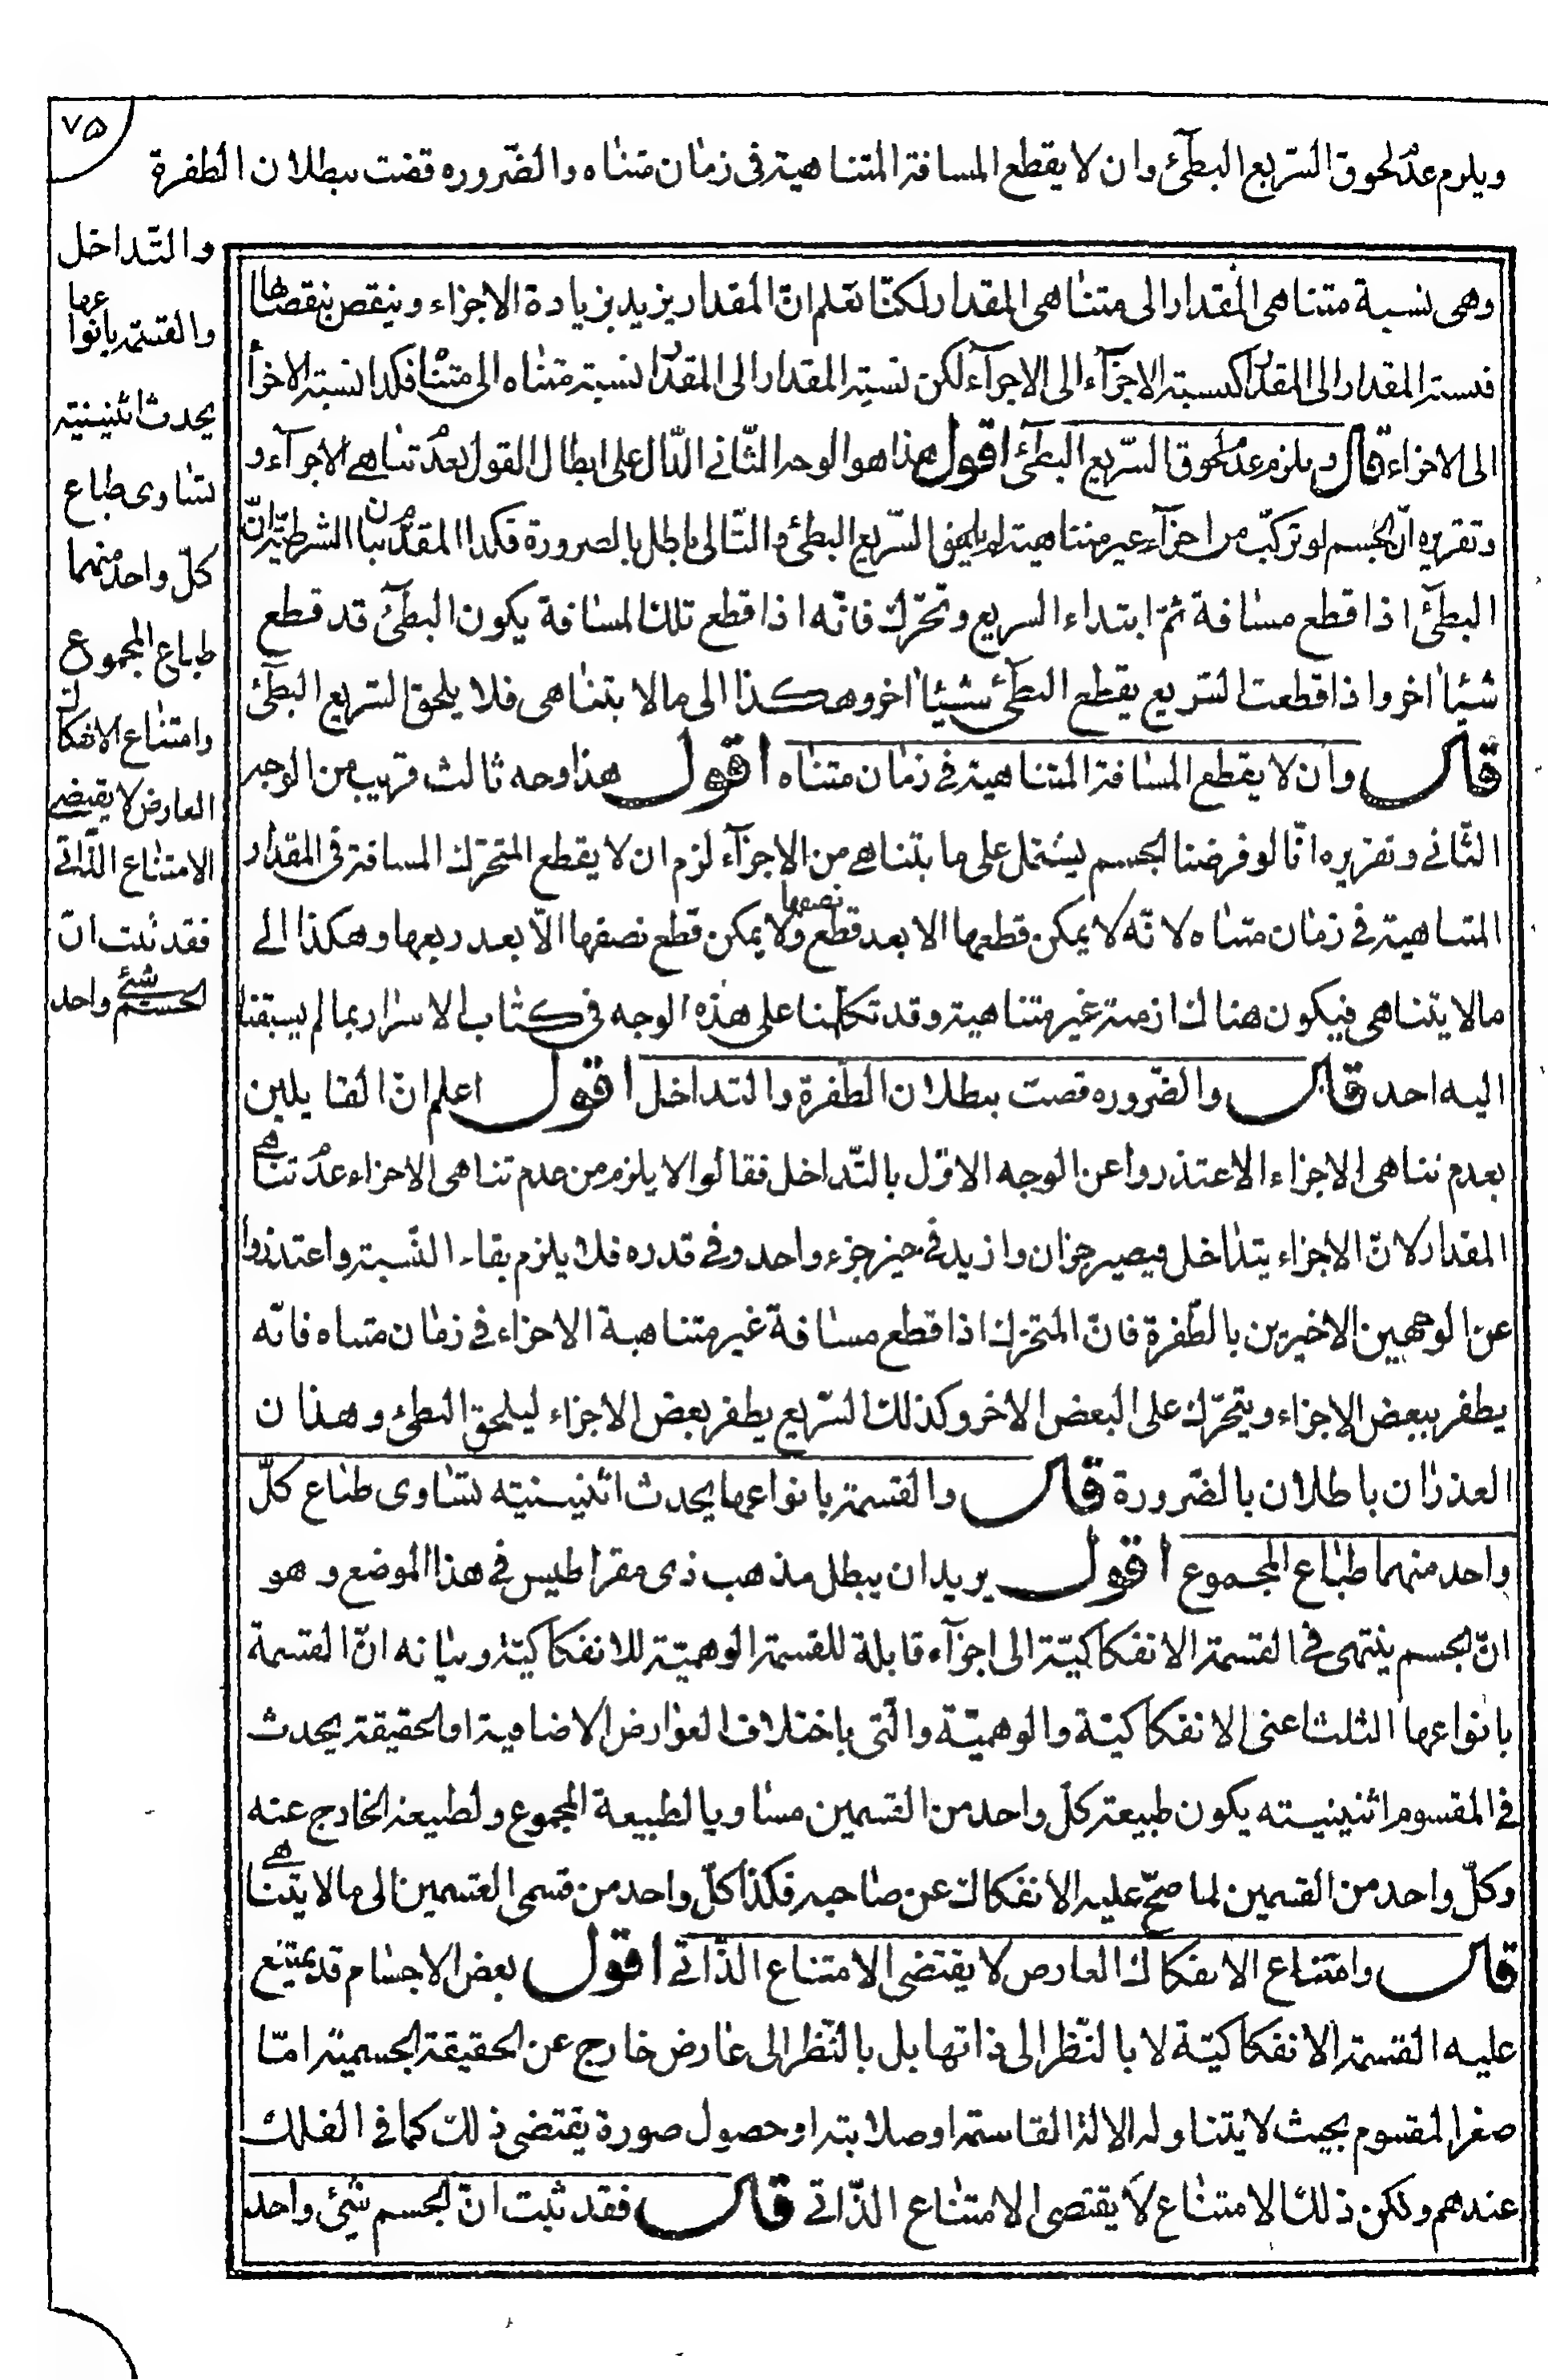 ٧۵
ويلزم عدم لحوق السّريع البطئ وان لا يقطع المسافة المتناهية فى زمان متناه والضّروره قضت ببطلان الطفرة
والتّداخل
والقسمة بانواعها
يحدث اثنينيته
تساوى طباع
كلّ واحد منهما
طباع المجموع
وامتناع الانفكاك
العارض لا يقتضى
الامتناع الذّاتى
فقد ثبت انّ
الجسم شئ واحد
وهى نسبة متناهى المقدار الى متناهى المقدار لكنّا نعلم انّ المقدار يزيد بزيادة الاجزاء وينقص بنقصانها
فنسبة المقدار الى المقدار كنسبة الاجزآء الى الاجزآء لكن نسبة المقدار الى المقدار نسبة متناه الى متناه فكذا نسبة الاجزآء
الى الاجزاء قال ويلزم عدم لحوق السّريع البطئ اقول هذا هو الوجه الثّانى الدّال على ابطال القول بعدم تناهى الاجزآء و
وتقريره انّ الجسم لو تركّب من اجزآء غير متناهية لم يلحق السّريع البطئ والتّالى باطل بالضرورة فكذا المقدّم بيان الشرطيّة انّ
البطئ اذا قطع مسافة ثمّ ابتداء السريع وتحرّك فانّه اذا قطع تلك المسافة يكون البطئ قد قطع
شيئا اخر واذا قطعت السّريع يقطع البطئ شيئا اخر وهكذا الى مالا يتناهى فلا يلحق السّريع البطئ
قال وان لا يقطع المسافة المتناهية فى زمان متناه اقول هذا وجه ثالث قريب من الوجه
الثّانى وتقريره انّا لو فرضنا الجسم يشتمل على ما يتناهى من الاجزآء لزم ان لا يقطع المتحرّك المسافة فى المقدار
المتناهية فى زمان متناه لانّه لا يمكن قطعها الا بعد قطع نصفها ولا يمكن قطع نصفها الّا بعد ربعها وهكذا الى
مالا يتناهى فيكون هناك ازمنة غير متناهية وقد تكلمنا على هذه الوجه فى كتاب الاسرار بما لم يسبقنا
اليه احد قال والضّروره قضت ببطلان الطفرة والتداخل اقول اعلم انّ القايلين
بعدم تناهى الاجزاء الاعتذروا عن الوجه الاوّل بالتّداخل فقالوا لا يلزم من عدم تناهى الاجزاء عدم تناهى
المقدار لانّ الاجزاء يتداخل فيصير جزان وازيد فى حيز جزء واحد وفى قدره فلا يلزم بقاء النّسبة واعتذروا
عن الوجهين الاخيرين بالطّفرة فانّ المتحرّك اذا قطع مسافة غير متناهية الاجزاء فى زمان متناه فانّه
يطفر ببعض الاجزاء ويتحرّك على البعض الاخر وكذلك السّريع يطفر بعض الاجزاء ليلحق البطئ وهذان
العذران باطلان بالضّرورة قال والقسمة بانواعها يحدث اثنينيته تساوى طباع كلّ
واحد منهما طباع المجموع اقول يريد ان يبطل مذهب ذى مقراطيس فى هذا الموضع وهو
انّ الجسم ينتهى فى القسمة الانفكاكيّة الى اجزآء قابلة للقسمة الوهميّة للانفكاكيّة وبيانه انّ القسمة
بانواعها الثلث اعنى الانفكاكيّة والوهميّة والّتى باختلاف العوارض الاضافية او الحقيقة يحدث
فى المقسوم اثنينيته يكون طبيعة كلّ واحد من القسمين مساويا لطبيعة المجموع ولطبيعة الخارج عنه
وكلّ واحد من القسمين لما صحّ عليه الانفكاك عن صاحبه فكذا كلّ واحد من قسمى القسمين الى مالا يتناهى
قال وامتناع الانفكاك العارض لا يقتضى الامتناع الذّاتى اقول بعض الاجسام قد يمتنع
عليه القسمة الانفكاكيّة لا بالنّظر الى ذاتها بل بالنّظر الى عارض خارج عن الحقيقة الجسميّة امّا
صغر المقسوم بحيث لا يتناوله الالة القاسمة او صلابته او حصول صورة يقتضى ذلك كما فى الفلك
عندهم ولكن ذلك الامتناع لا يقتضى الامتناع الذّاتى قال فقد ثبت انّ الجسم شئ واحد